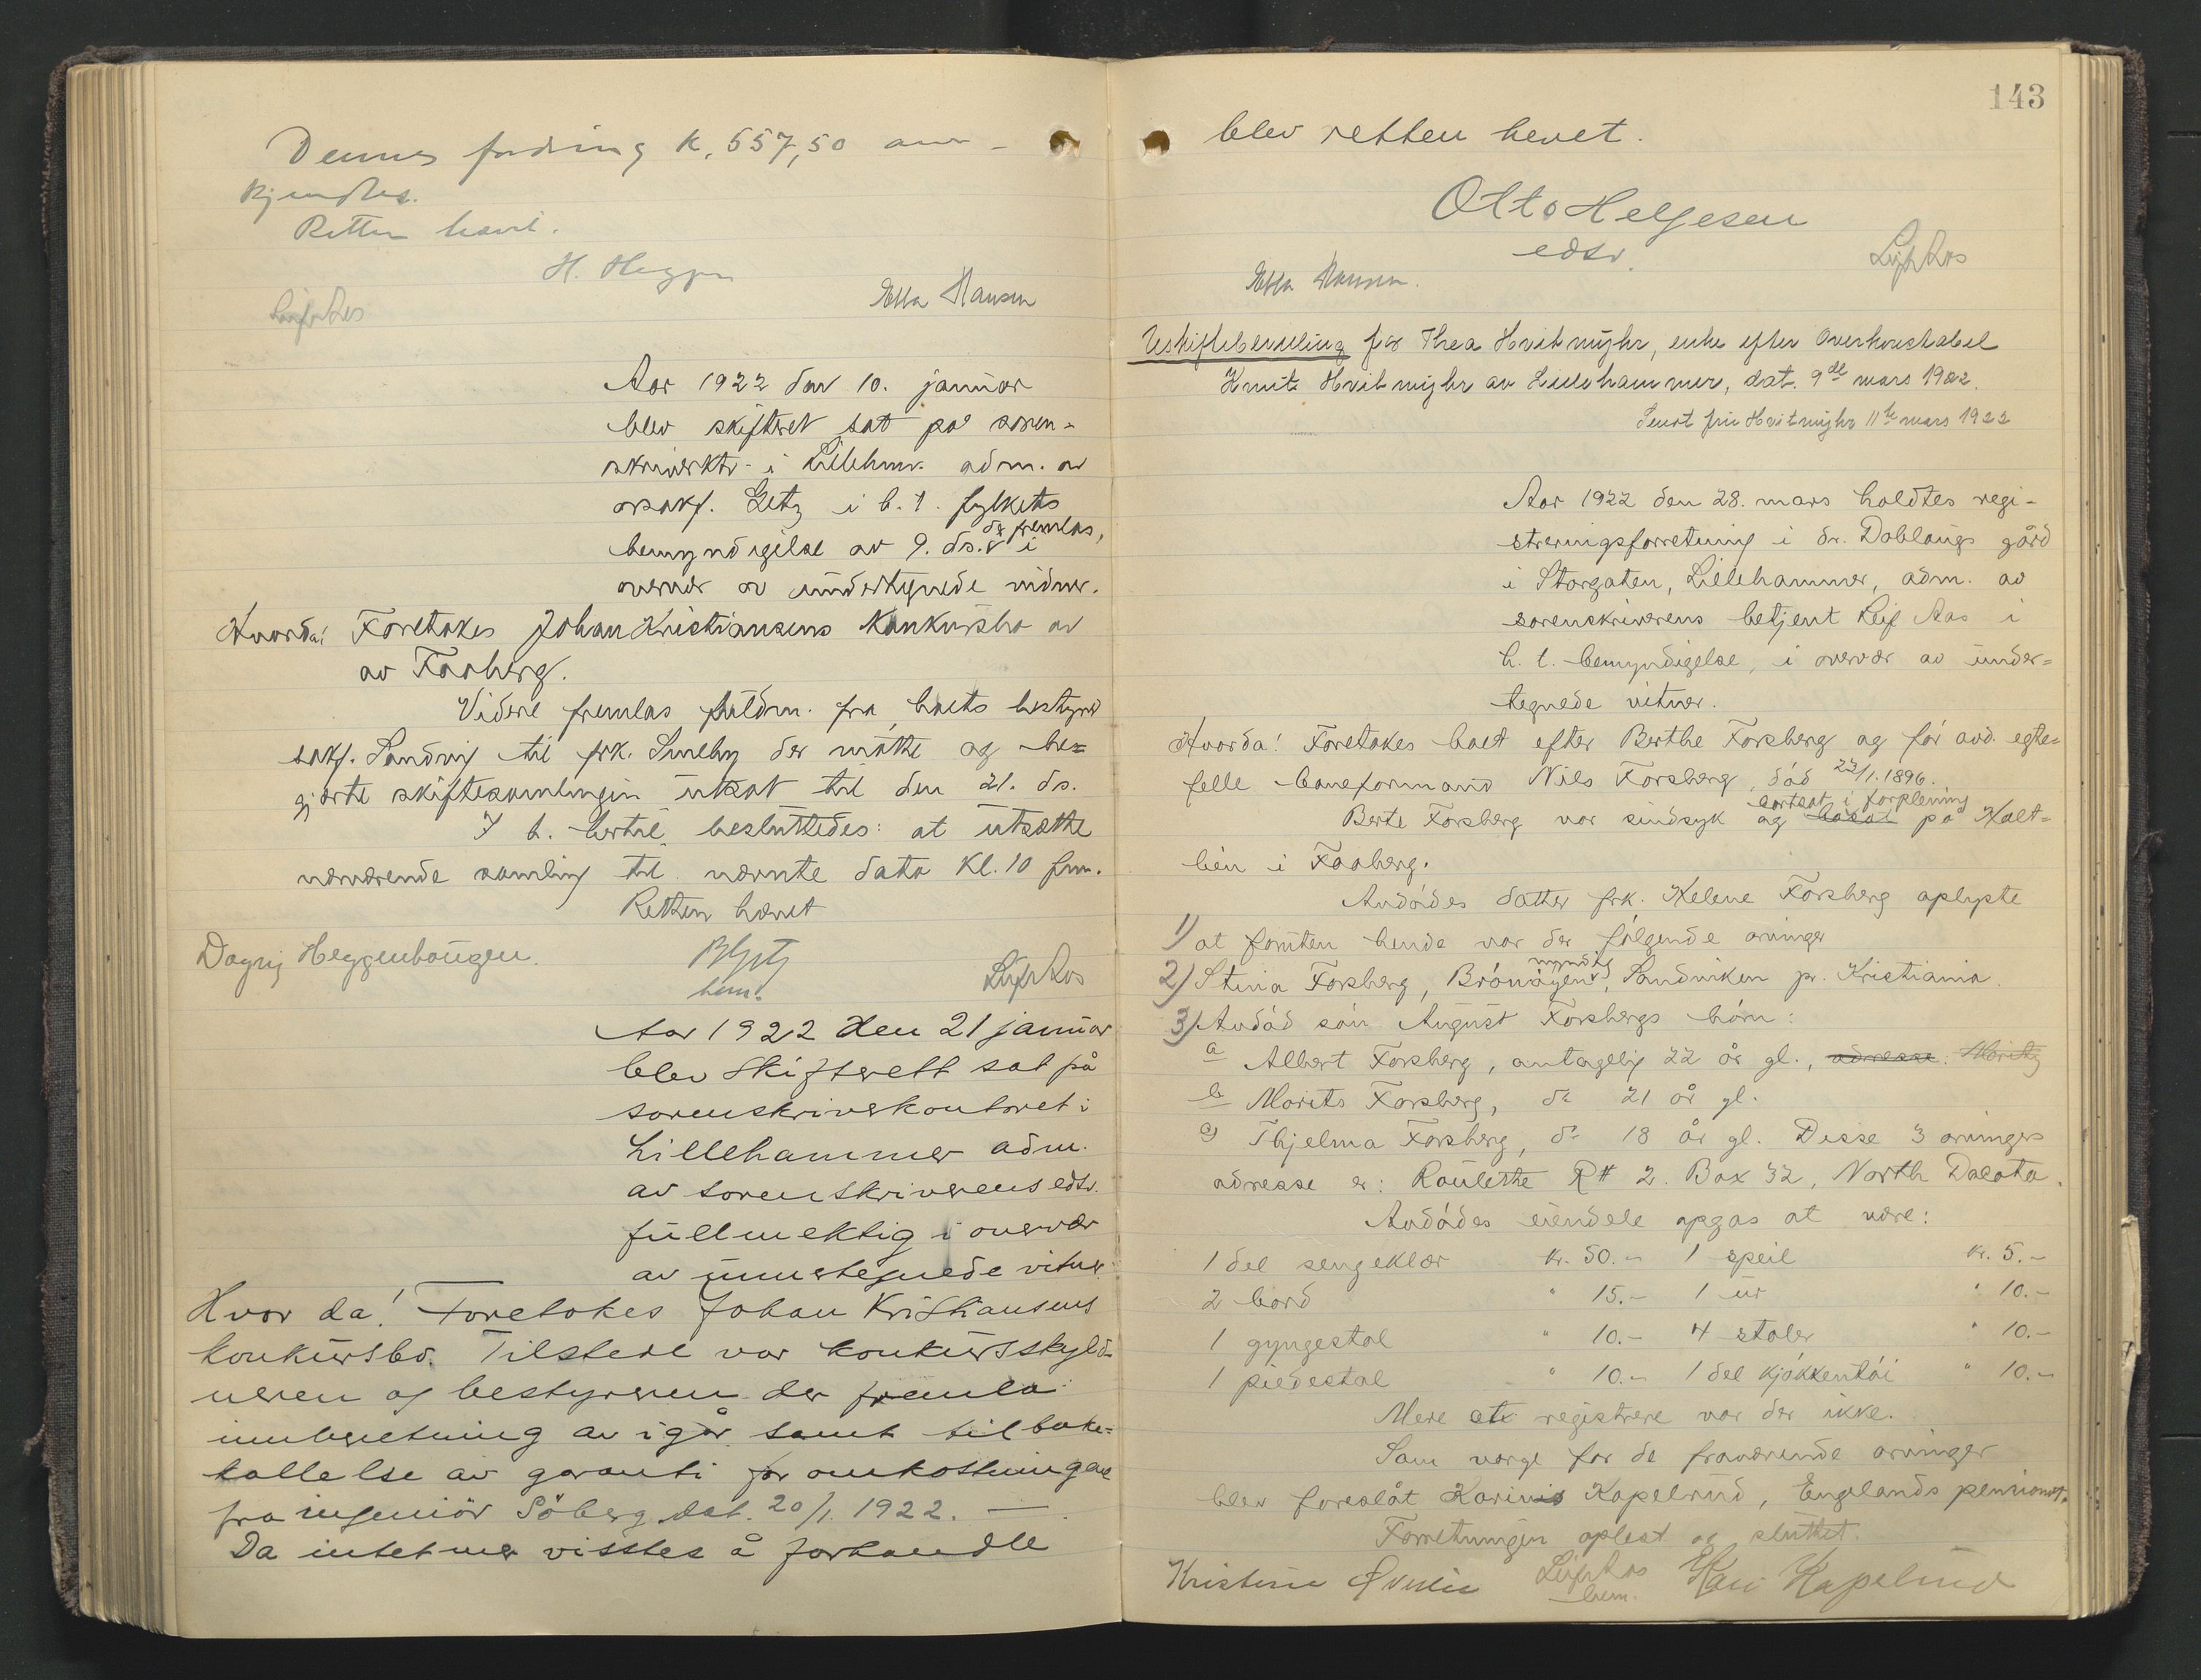 Dennes fordring k. 557,50 aner-
kjendtes.
Retten hævet.
H. Heggen
Leif Aas
Ella Hansen
Aar 1922 den 10. januar
blev skifteret sat paa soren-
skriverktr. i Lillehmr. adm. av
o.sakf. Getz i h. t. fylkets
bemyndigelse av 9. ds. der fremlas, i
overvær av undertegnede vidner.
Hvorda! Foretokes Johan Kristiansens konkursbo av
av Faaberg.
Videre fremlas fuldm. fra boets bestyrer
sakf. Sandvig til frk. Smeby der møtte og be=
gjærte skiftesamlingen utsat til den 21. ds.
I h. hertil besluttedes: at utsætte
nærværende samling til nævnte dato kl. 10 fm.
Retten hævet
Dagny Heggenhougen.
BGetz
bem.
Leif Aas
Aar 1922 den 21 januar
blev Skifterett sat på
sorenskriverkontoret i
Lillehammer adm.
av sorenskriverens edsv.
fullmektig i overvær
av unnertegnede vitner.
Hvor da! Foretokes Johan Kristiansens
konkursbo. Tilstede var konkursskyld-
neren og bestyreren der fremla
innberetning av igår samt tilbake-
kallelse av garanti for omkostningene
fra ingeniör Söberg dat. 20/1. 1922. —
Da intet mer visstes å forhandle
143
blev retten hevet.
Otto Helgesen
edsv.
Leif Aas
Ella Hansen.
Uskiftebevilling for Thea Hvitmyhr, enke efter Overkonstabel
Knut Hvitmyhr av Lillehammer, dat. 9de mars 1922.
Sendt fru Hvitmyhr 11te mars 1922
Aar 1922 den 28. mars holdtes regi-
streringsforretning i dr. Doblougs gård
i Storgaten, Lillehammer, adm. av
sorenskriverens betjent Leif Aas i
h. t. bemyndigelse, i overvær av under=
tegnede vitner.
Hvorda! Foretokes boet efter Berthe Forsberg og før avd. egte=
felle baneformand Nils Forsberg, død 23/1. 1896.
Berte Forsberg var sindsyk og bosat bortsat i forpleining på Kalt=
bén i Faaberg.
Avdødes datter frk. Helene Forsberg oplyste
1) at foruten hende var der følgende arvinger
2) Stina Forsberg, myndig, Sandviken pr. Kristiania.
3) Avdød søn August Forsbergs børn:
a Albert Forsberg, antagelig 22 år gl., adresse: Moritz
b Morits Forsberg, do 21 år gl.
c) Thjelma Forsberg, do 18 år gl. Disse 3 arvingers
adresse er: Roulette R# 2. Box 32, North Dacota.
Avdødes eiendele opgas at være:
1 del sengeklær kr. 50.- 1 speil kr. 5.-
2 bord " 15.- 1 ur " 10.-
1 gyngestol " 10.- 4 stoler " 10.-
1 piedestal " 10.- 1 del kjøkkentøi " 10.-
Mere at registrere var der ikke.
Som verge for de fraværende arvinger
blev foreslåt Kapelrud, Englands pensionat.
Forretningen oplest og sluttet.
Kristine
Leif Aas
bem.
Kari Kapelrud